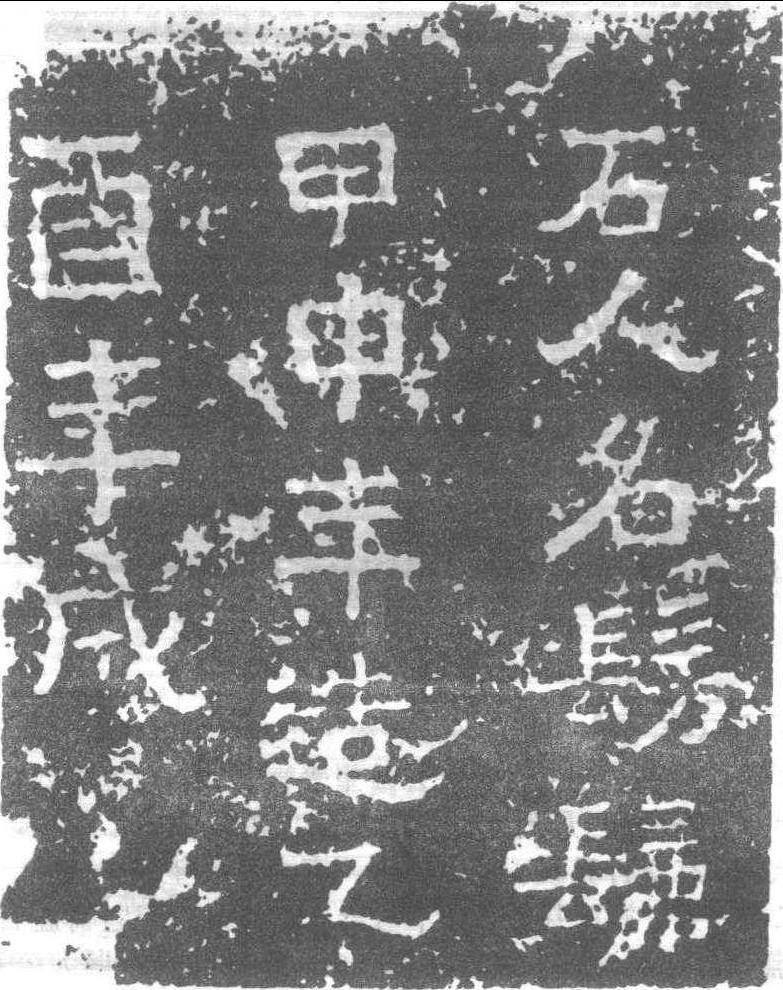 石人名
甲申年造乙
酉年成